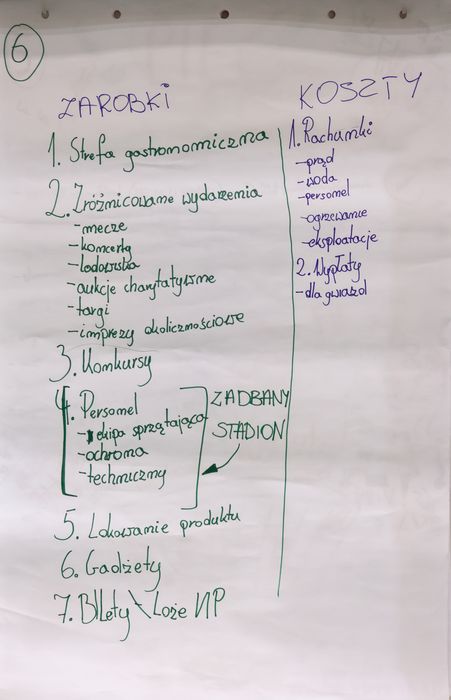 6
ZAROBKI
1. Strefa gastronomiczna
2. Zróżnicowane wydarzenia
-mecze
-koncerty
-lodowisko
-aukcje charytatywne
-targi
-imprezy okolicznościowe
3. Konkursy
4. Personel
-ekipa sprzątająca
-ochrona
-techniczny
ZADBANY
STADION
5. Lokowanie produktu
6. Gadżety
7. BIlety\Loże VIP
KOSZTY
1. Rachunki
-prąd
-woda
-personel
-ogrzewanie
-eksploatacje
2. Wypłaty
-dla gwiazd